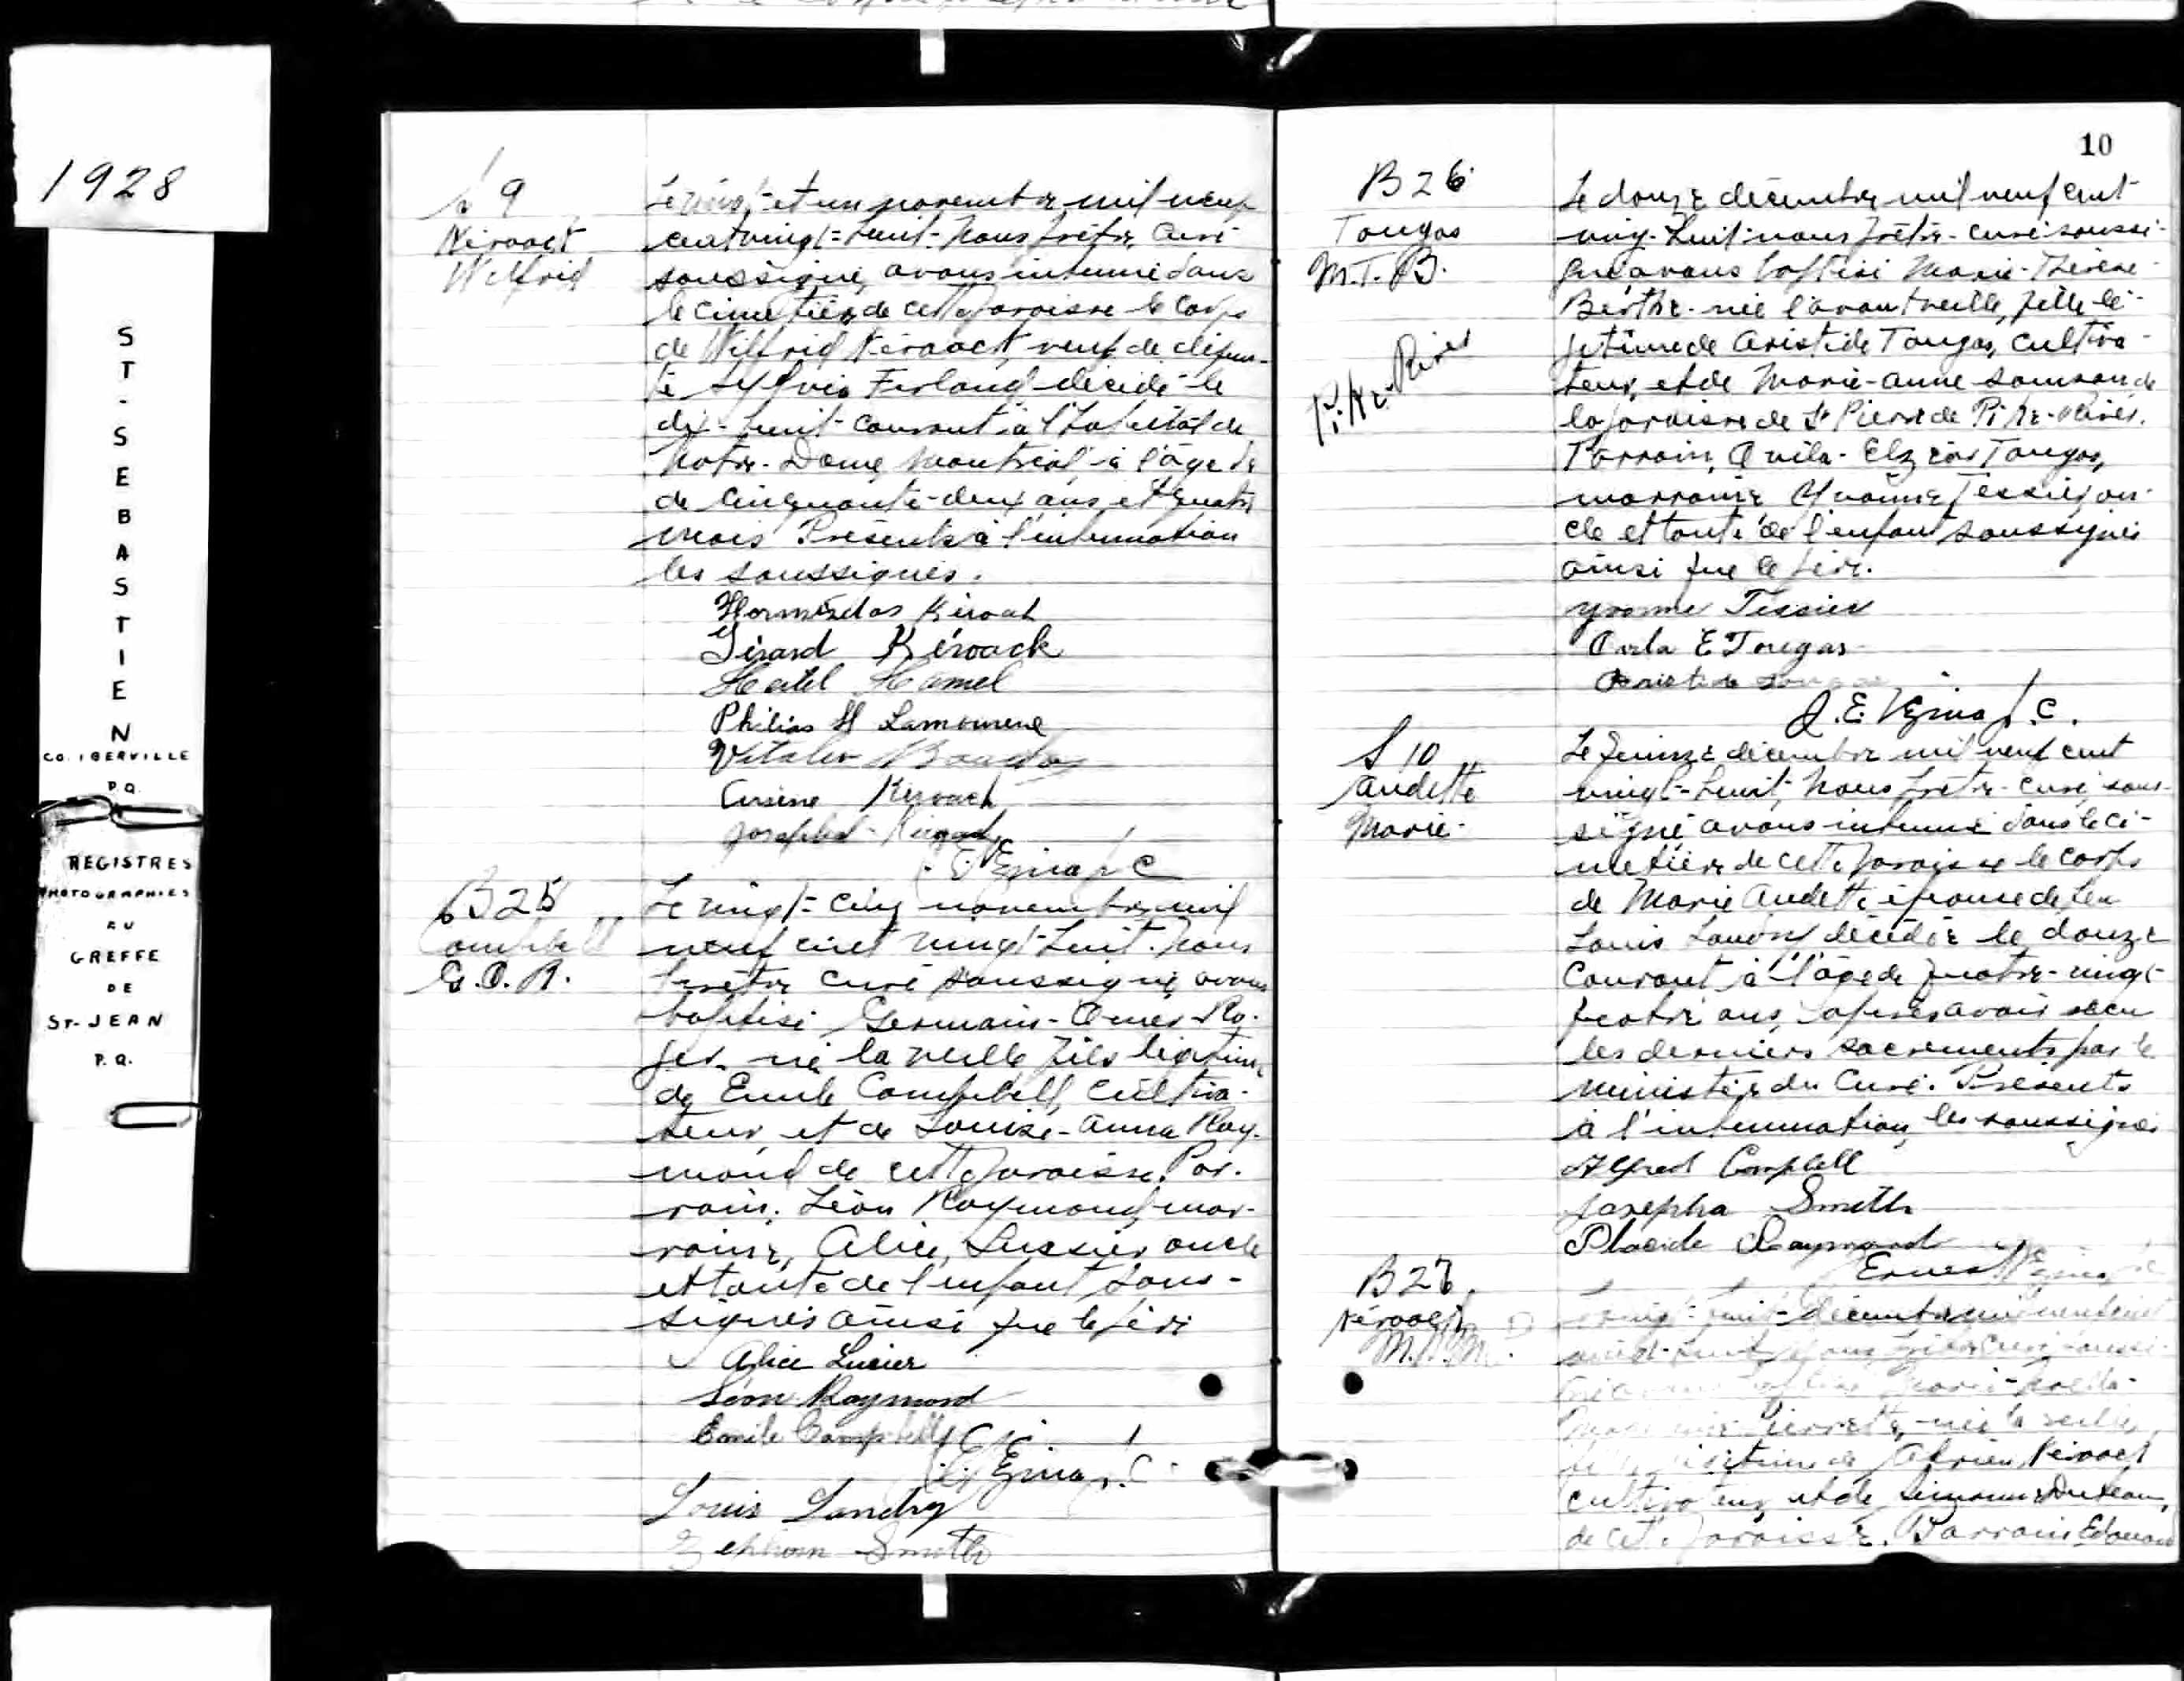 1928
ST-SEBASTIEN
CO. IBERVILLE
P.Q.
REGISTRES
PHOTOGRAPHIES
AU
GREFFE
DE
ST-JEAN
P.Q.
S 9
Kéroack
Wilfrid
Le vingt-et un novembre mil neuf
cent vingt-huit nous prêtre curé
soussigné, avons inhumé dans
le cimetière de cette paroisse le corps
de Wilfrid Kéroack, veuf de défun-
te Sylvia Ferland décédé le
dix-huit courant à l'hôpital de
Notre-Dame, Montréal à l'âge de
de cinquante-deux ans et quatre
mois Présents à l'inhumation
les soussignés.
Hormisdas Kéroack
Gérard Kéroack
Hamel
Philias H Lamoureux
Kéroack
Joseph Kéroack
B 25
Campbell
G.O.R.
Le vingt-cinq novembre mil
neuf cent vingt-huit. Nous
prêtre curé soussigné, avons
baptisé Germain-Omer-Ro-
ger né la veille fils légitime
de Emile Campbell, cultiva-
teur, et de Louise-Anna Ray-
mond de cette paroisse. Par-
rain, Léon Raymond, mar-
raine, Alice Lussier oncle
et tante de l'enfant sous-
signés ainsi que le père
Alice Lusier
Léon Raymond
Emile Campbell
Louis Landry
Smith
10
B 26
Tougas
M.T.B.
Pike-River
Le douze décembre mil neuf cent
ving-huit nous prêtre-curé soussi-
gné avons baptisé Marie-Thérèse-
Berthe née l'avant veille, fille lé-
gitime de Aristide Tougas, cultiva-
teur, et de Marie-Anne Samson de
la paroisse de St Pierre de Pike-River.
Parrain, Avila-Elzéar Tougas,
marraine Yvonne Tessier, on-
cle et tante de l'enfant soussignés
ainsi que le père.
Yvonne Tessier
Avila E Tougas
Aristide Tougas
J.E. Vézina p.c.
S 10
Audette
Marie
Le quinze décembre mil neuf cent
vingt-huit, Nous prêtre-curé sous-
signé avons inhumé dans le ci-
metière de cette paroisse le corps
de Marie Audette épouse de feu
Louis décédée le douze
courant à l'âge de quatre-vingt-
quatre ans, après avoir reçu
les derniers sacrements par le
ministère du Curé. Présents
à l'inhumation, les soussignés
Alfred Campbell
Josepha Smith
Placide Raymond
Ernest Vézina
B 27
Kéroack
vingt-huit décembre mil neuf cent
vingt-huit nous prêtre curé soussi-
gné avons baptisé Marie-
Pierrette, née la veille
fille légitime de Adrien Kéroack
cultivateur, et de
de cette paroisse. Parrain Edouard